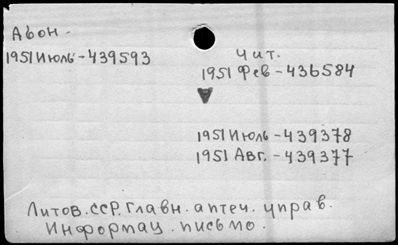 Абон.
1951 Июль-439593
Чит.
1951 Фев-436584
1951 Июль-439378
1951 Авг.-439377
Литов.ССР.Главн.аптеч.управ.
Информац.письмо.